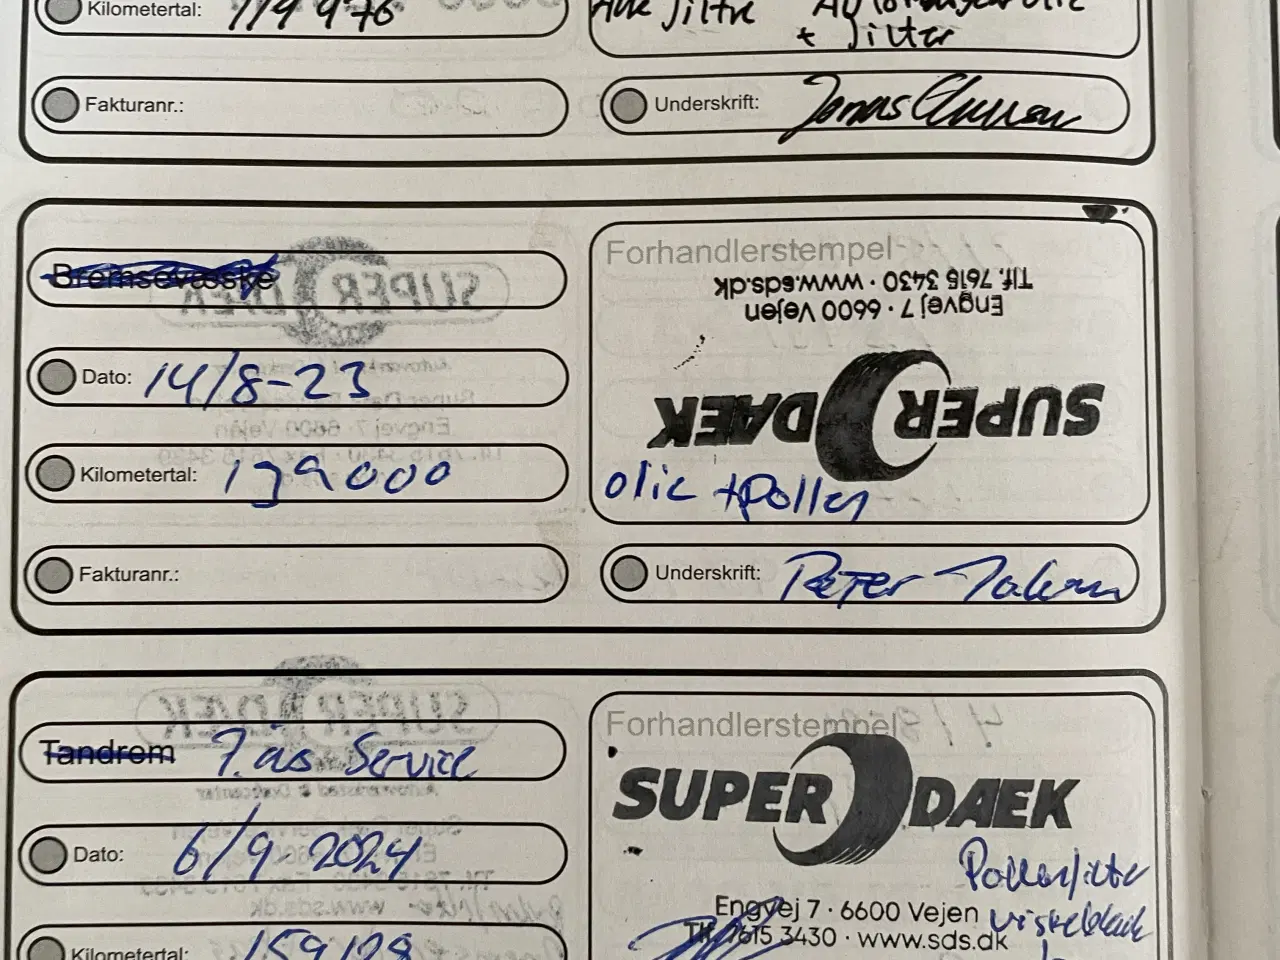 Kilometertal: 119976
Alle filtre
+ filter
Fakturanr.:
Underskrift:
Bremsevæske
Forhandlerstempel
Engvej 7 · 6600 Vejen
Tlf. 7615 3430 · www.sds.dk
SUPER DAEK
Dato: 14/8-23
Kilometertal: 139000
olie + Pollen
Fakturanr.:
Underskrift: Peter
Tandrem 7. års Service
Forhandlerstempel
SUPER DAEK
Dato: 6/9-2024
Pollenfilter
Engvej 7 · 6600 Vejen viskeblade
Tlf. 7615 3430 · www.sds.dk
Kilometertal: 159128